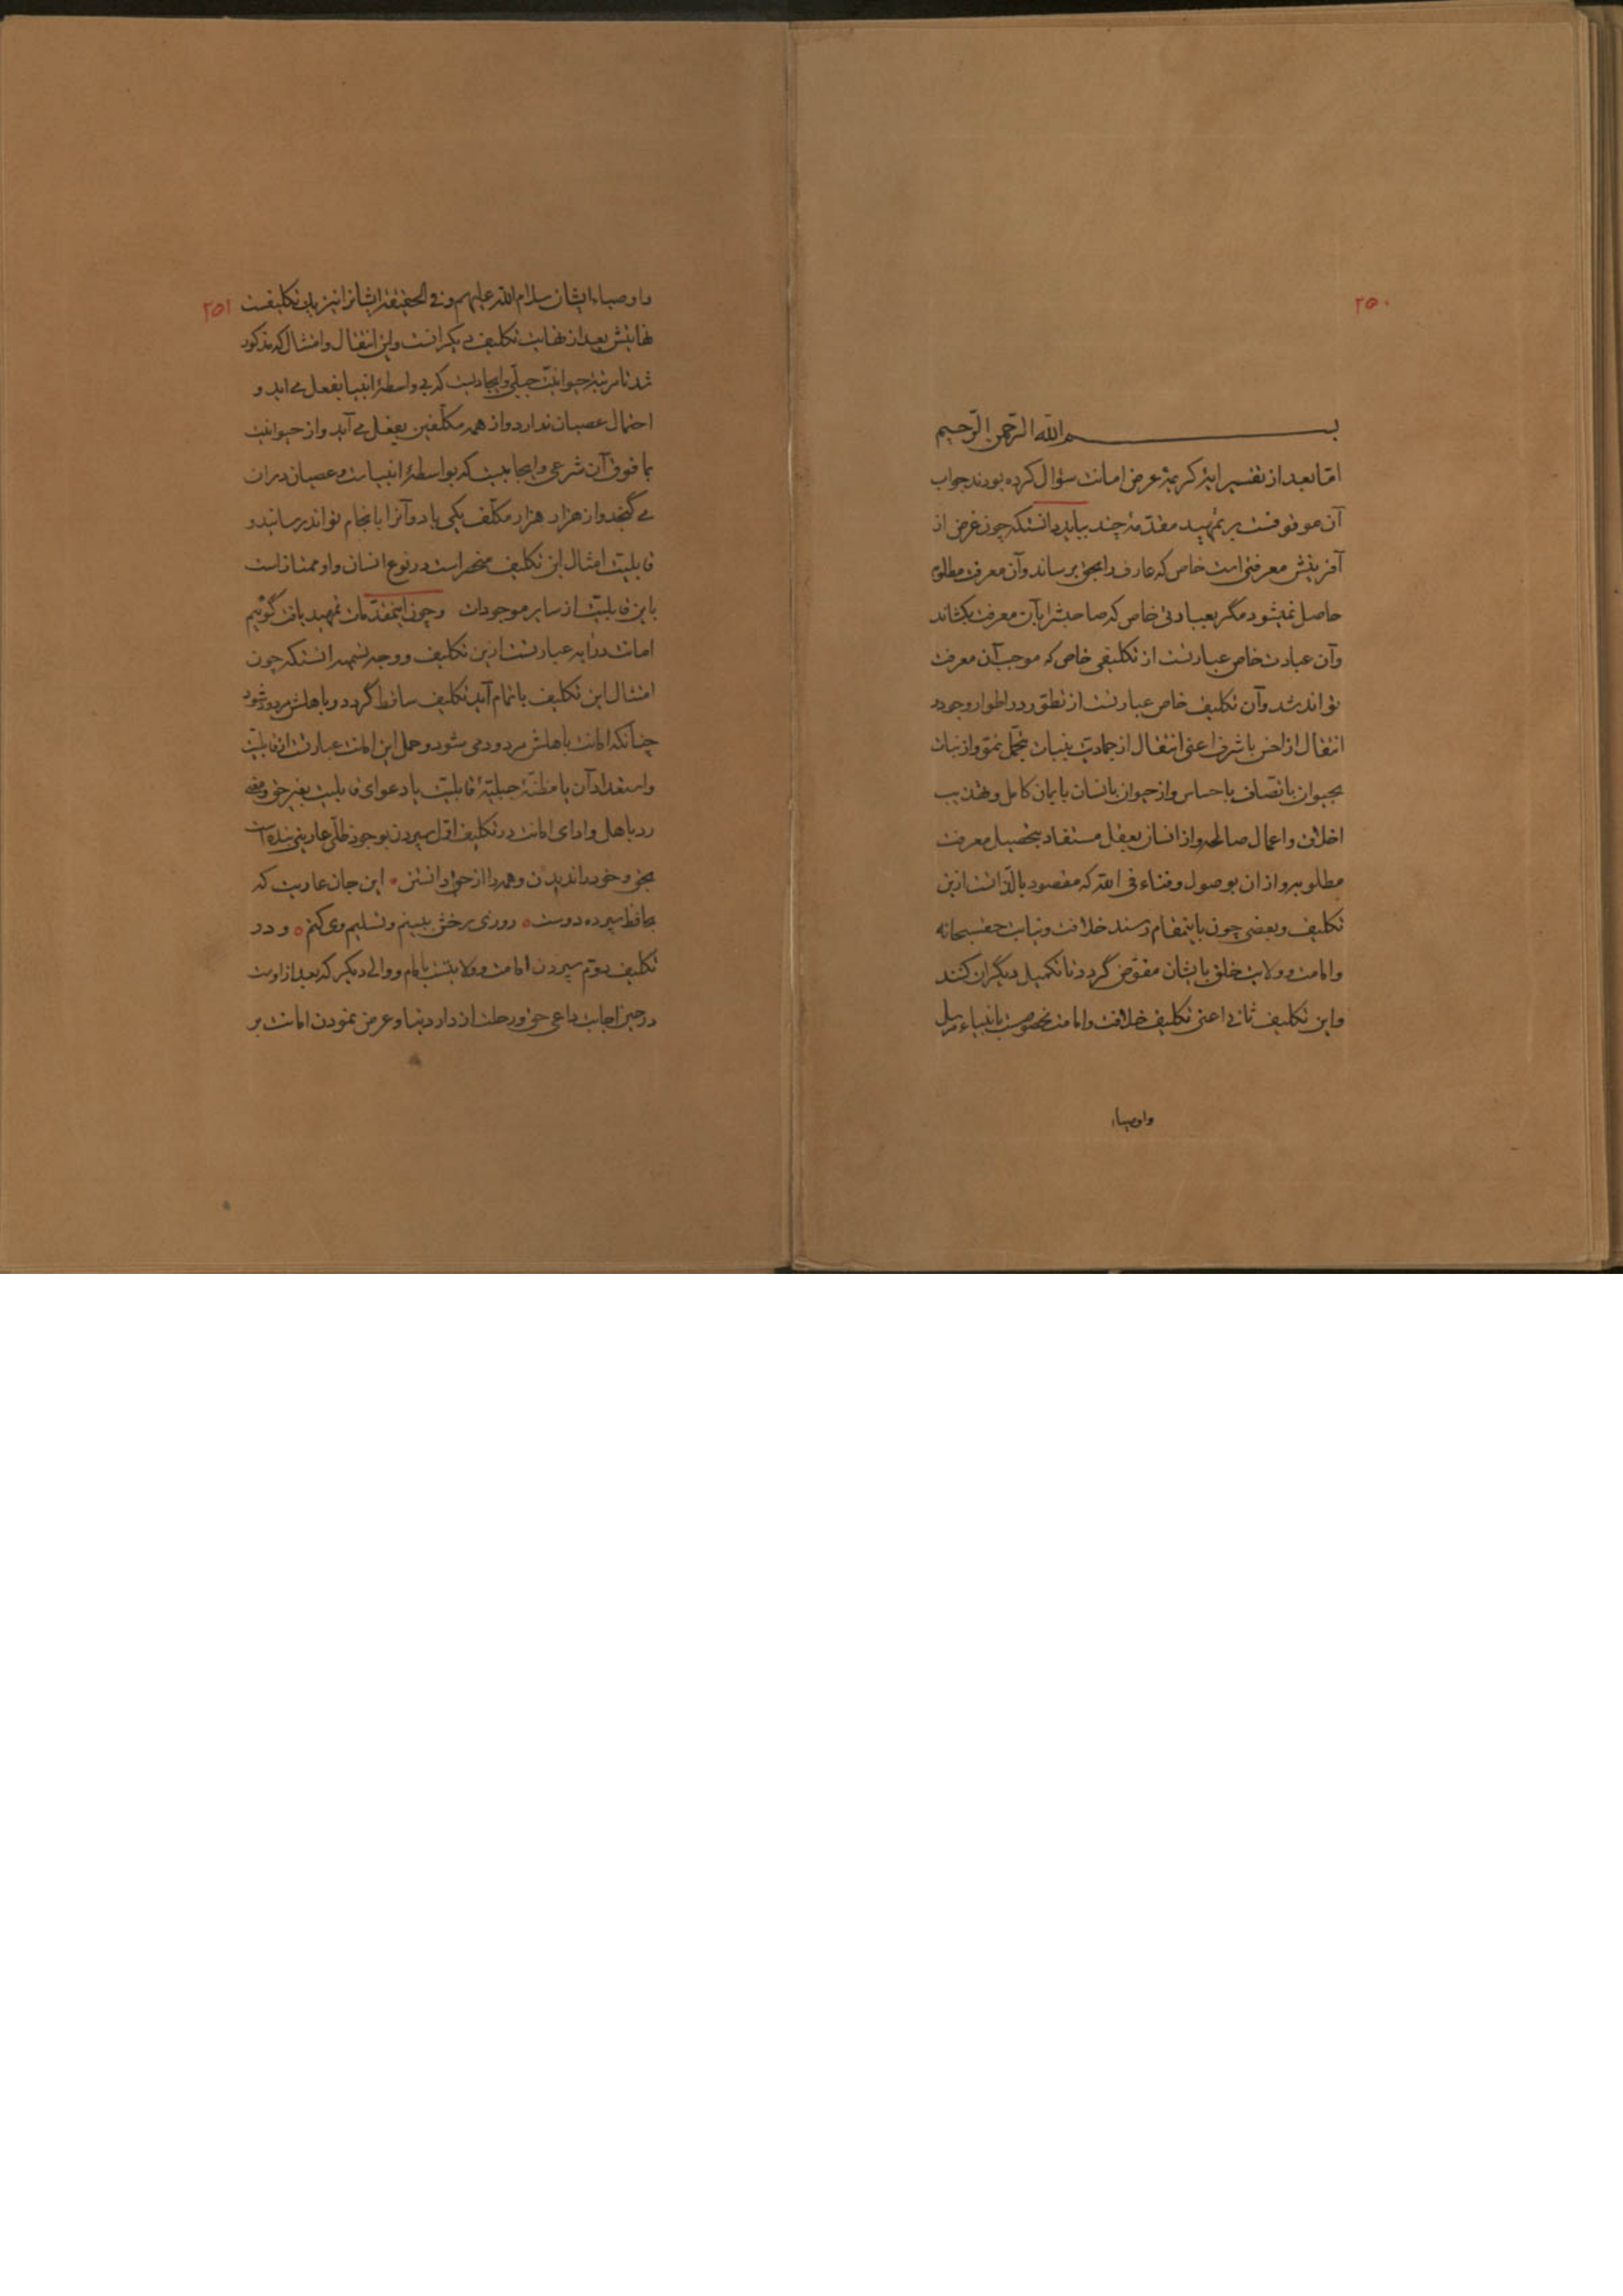 ۲۵۰
بسم الله الرحمن الرحیم
امّا بعد از تفسیر ایهٔ کریمهٔ عرض امانت سؤال کرده بودند جواب
آن موقوفست بر تمهید مقدّمهٔ چند بباید دانست که چون غرض از
آفرینش معرفتی است خاص که عارف را بحق برساند و آن معرفت مطلوبه
حاصل نمیشود مگر بعبادتی خاص که صاحبش را بآن معرفت بکشاند
و آن عبادت خاص عبارتست از تکلیفی خاص که موجب آن معرفت
تواند شد و آن تکلیف خاص عبارتست از تطوّر در اطوار وجود و
انتقال از اخس باشرف اعنی انتقال از جمادیت بنبات بتحمّل نموّ و از نبات
بحیوان باتّصاف باحساس و از حیوان بانسان بایمان کامل و تهذیب
اخلاق و اعمال صالحه و از انسان بعقل مستفاد بتحصیل معرفت
مطلوبه و از ان بوصول و فناء فی الله که مقصود بالذّاتست ازین
تکلیف و بعضی چون باینمقام رسند خلافت و نیابت حقسبحانه
و امامت و ولایت خلق بایشان مفوّض گردد تا تکمیل دیگران کنند
و این تکلیف ثانی اعنی تکلیف خلافت و امامت مخصوصست بانبیاء و رسل
و اوصیاء
۲۵۱
و اوصیاء ایشان سلام الله علیهم و فی الحقیقه ایشانرا نیز باین تکلیفست
نهایتش بعد از نهایت تکلیف دیگرانست و این انتقال و امتثال که مذکور
شد تا مرتبهٔ حیوانیّت جبلّی و ایجادیست که بی واسطهٔ انبیا بفعل می اید و
احتمال عصیان ندارد و از همه مکلّفین بفعل می آید و از حیوانیت
بما فوق آن شرعی و ایجابیست که بواسطهٔ انبیاست و عصیان دران
می گنجد و از هزار هزار مکلّف یکی یا دو آنرا بانجام تواند رسانید و
قابلیّت امتثال این تکلیف منحصر است در نوع انسان و او ممتاز است
باین قابلیّت از سایر موجودات و چون اینمقدّمات تمهید یافت گوئیم
امانت در ایه عبارتست ازین تکلیف و وجه تسمیه انستکه چون
امتثال این تکلیف باتمام آید تکلیف ساقط گردد و باهلش مردود شود
چنانکه امانت باهلش مردود می شود و حمل این امانت عبارتست از قابلیّت
و استعداد آن یا مظنّهٔ جبلیّهٔ قابلیّت یا دعوای قابلیت بغیر حق و معنی
رد باهل و ادای امانت در تکلیف اوّل سپردن وجود ظلّی عاریتی بنده است
بحق و خود را ندیدن و همه را از حق دانستن این جان عاریت که
بحافظ سپرده دوست روزی رخش ببینم و تسلیم وی کنم و در
تکلیف دوّم سپردن امامت و ولایتست بامام و والی دیگر که بعد از اوست
در حین اجابت داعی حق و رحلت از دار دنیا و عرض نمودن امانت بر